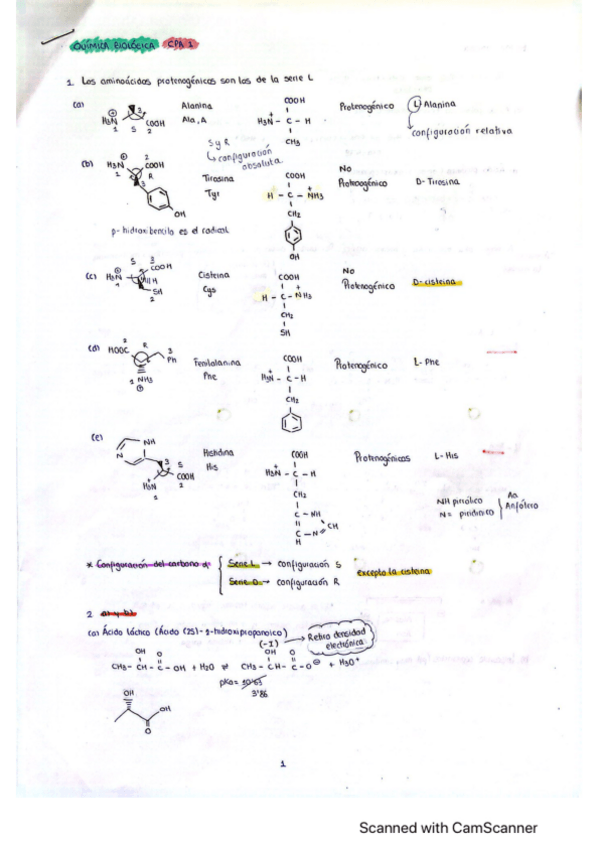 QUÍMICA BIOLÓGICA CPA 1
1. Los aminoácidos proteinogénicos son los de la serie L
(a) H3N + 1 S 2 3 COOH Alanina Ala, A COOH H3N+ - C - H CH3 Proteinogénico L Alanina
configuración relativa
S y R
configuración absoluta
(b) H3N + 1 2 COOH R 3 OH Tirosina Tyr COOH H - C - NH3 + CH2 OH No Proteinogénico D- Tirosina
p- hidroxibencilo es el radical
(c) H3N + 1 S 3 COOH H SH 2 Cisteína Cys COOH H - C - NH3 + CH2 SH No Proteinogénico D- cisteína
(d) 2 HOOC R 3 Ph 1 NH3 + Fenilalanina Phe COOH H3N+ - C - H CH2 Proteinogénico L- Phe
(e) N NH 3 S COOH 2 H3N + 1 Histidina His COOH H3N+ - C - H CH2 C - NH CH C - N H Proteinogénicos L- His
NH pirrólico
N= piridínico
Aa Anfótero
* Configuración del carbono α
Serie L → configuración S
Serie D → configuración R
excepto la cisteína
2 a) y b)
(a) Ácido láctico (Ácido (2S)- 2-hidroxipropanoico)
(-I) → Retira densidad electrónica
OH O OH O
CH3 - CH - C - OH + H2O ⇌ CH3 - CH - C - O⊖ + H3O+
pKa = 3'86
OH OH O
1
Scanned with CamScanner